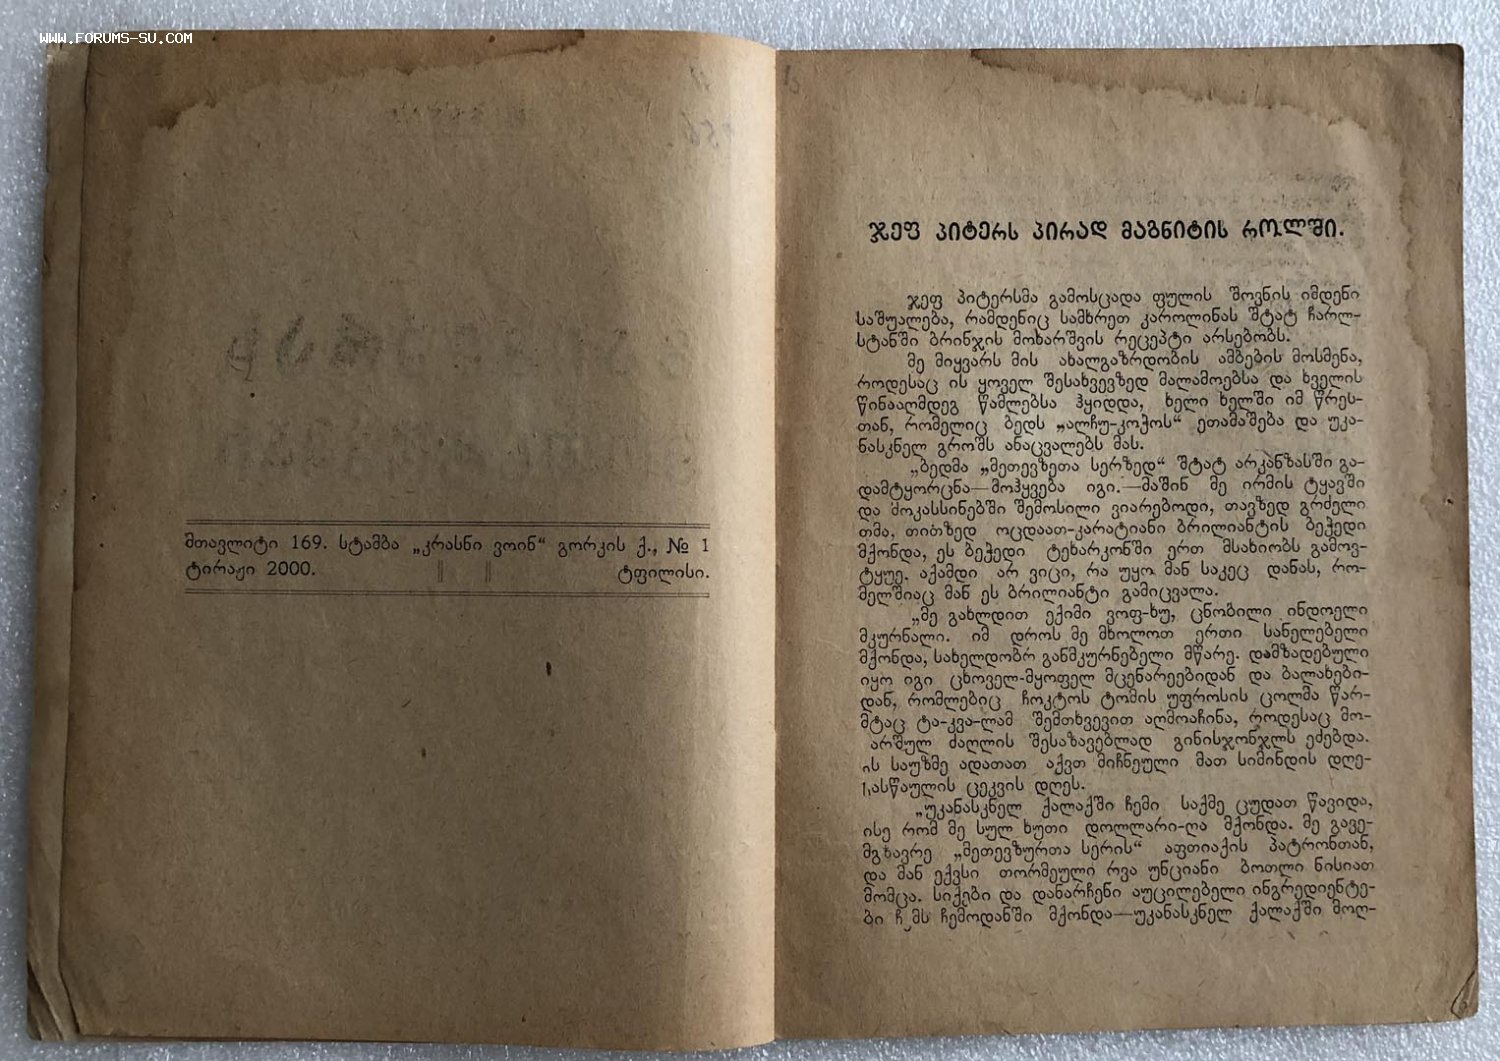 WWW.FORUMS-SU.COM
მთავლიტი 169. სტამბა „კრასნი ვოინ“ გორკის ქ., № 1
ტირაჟი 2000. ტფილისი.
ჯეფ პიტერს პირად მაგნიტის როლში.
ჯეფ პიტერსმა გამოსცადა ფულის შოვნის იმდენი
საშუალება, რამდენიც სამხრეთ კაროლინას შტატ ჩარლ-
სტანში ბრინჯის მოხარშვის რეცეპტი არსებობს.
მე მიყვარს მის ახალგაზრდობის ამბების მოსმენა,
როდესაც ის ყოველ შესახვევზედ მალამოებსა და ხველის
წინააღმდეგ წამლებსა ჰყიდდა, ხელი ხელში იმ წრეს-
თან, რომელიც ბედს „ალჩუ-კოჭოს“ ეთამაშება და უკა-
ნასკნელ გროშს ანაცვალებს მას.
„ბედმა „მეთევზეთა სერზედ“ შტატ არკანზასში გა-
დამტყორცნა—მოჰყვება იგი.—მაშინ მე ირმის ტყავში
და მოკასსინებში შემოსილი ვიარებოდი, თავზედ გრძელი
თმა, თითზედ ოცდაათ-კარატიანი ბრილიანტის ბეჭედი
მქონდა, ეს ბეჭედი ტეხარკონში ერთ მსახიობს გამოვ-
ტყუე. აქამდი არ ვიცი, რა უყო მან საკეც დანას, რო-
მელშიაც მან ეს ბრილიანტი გამიცვალა.
„მე გახლდით ექიმი ვოფ-ხუ, ცნობილი ინდოელი
მკურნალი. იმ დროს მე მხოლოთ ერთი სანელებელი
მქონდა, სახელდობრ განმკურნებელი მწარე. დამზადებული
იყო იგი ცხოველ-მყოფელ მცენარეებიდან და ბალახები-
დან, რომლებიც ჩოკტოს ტომის უფროსის ცოლმა წარ-
მტაც ტა-კვა-ლამ შემთხვევით აღმოაჩინა, როდესაც მო-
არშულ ძაღლის შესაზავებლად გინისჯონჯლს ეძებდა.
ის საუზმე ადათათ აქვთ მიჩნეული მათ სიმინდის დღე-
ასწაულის ცეკვის დღეს.
„უკანასკნელ ქალაქში ჩემი საქმე ცუდათ წავიდა,
ისე რომ მე სულ ხუთი დოლლარი-ღა მქონდა. მე გავე-
მგზავრე „მეთევზურთა სერის“ აფთიაქის პატრონთან,
და მან ექვსი თორმეული რვა უნციანი ბოთლი ნისიათ
მომცა. სიქები და დანარჩენი აუცილებელი ინგრედიენტე-
ბი ჩემოდანში მქონდა—უკანასკნელ ქალაქში მოღ-